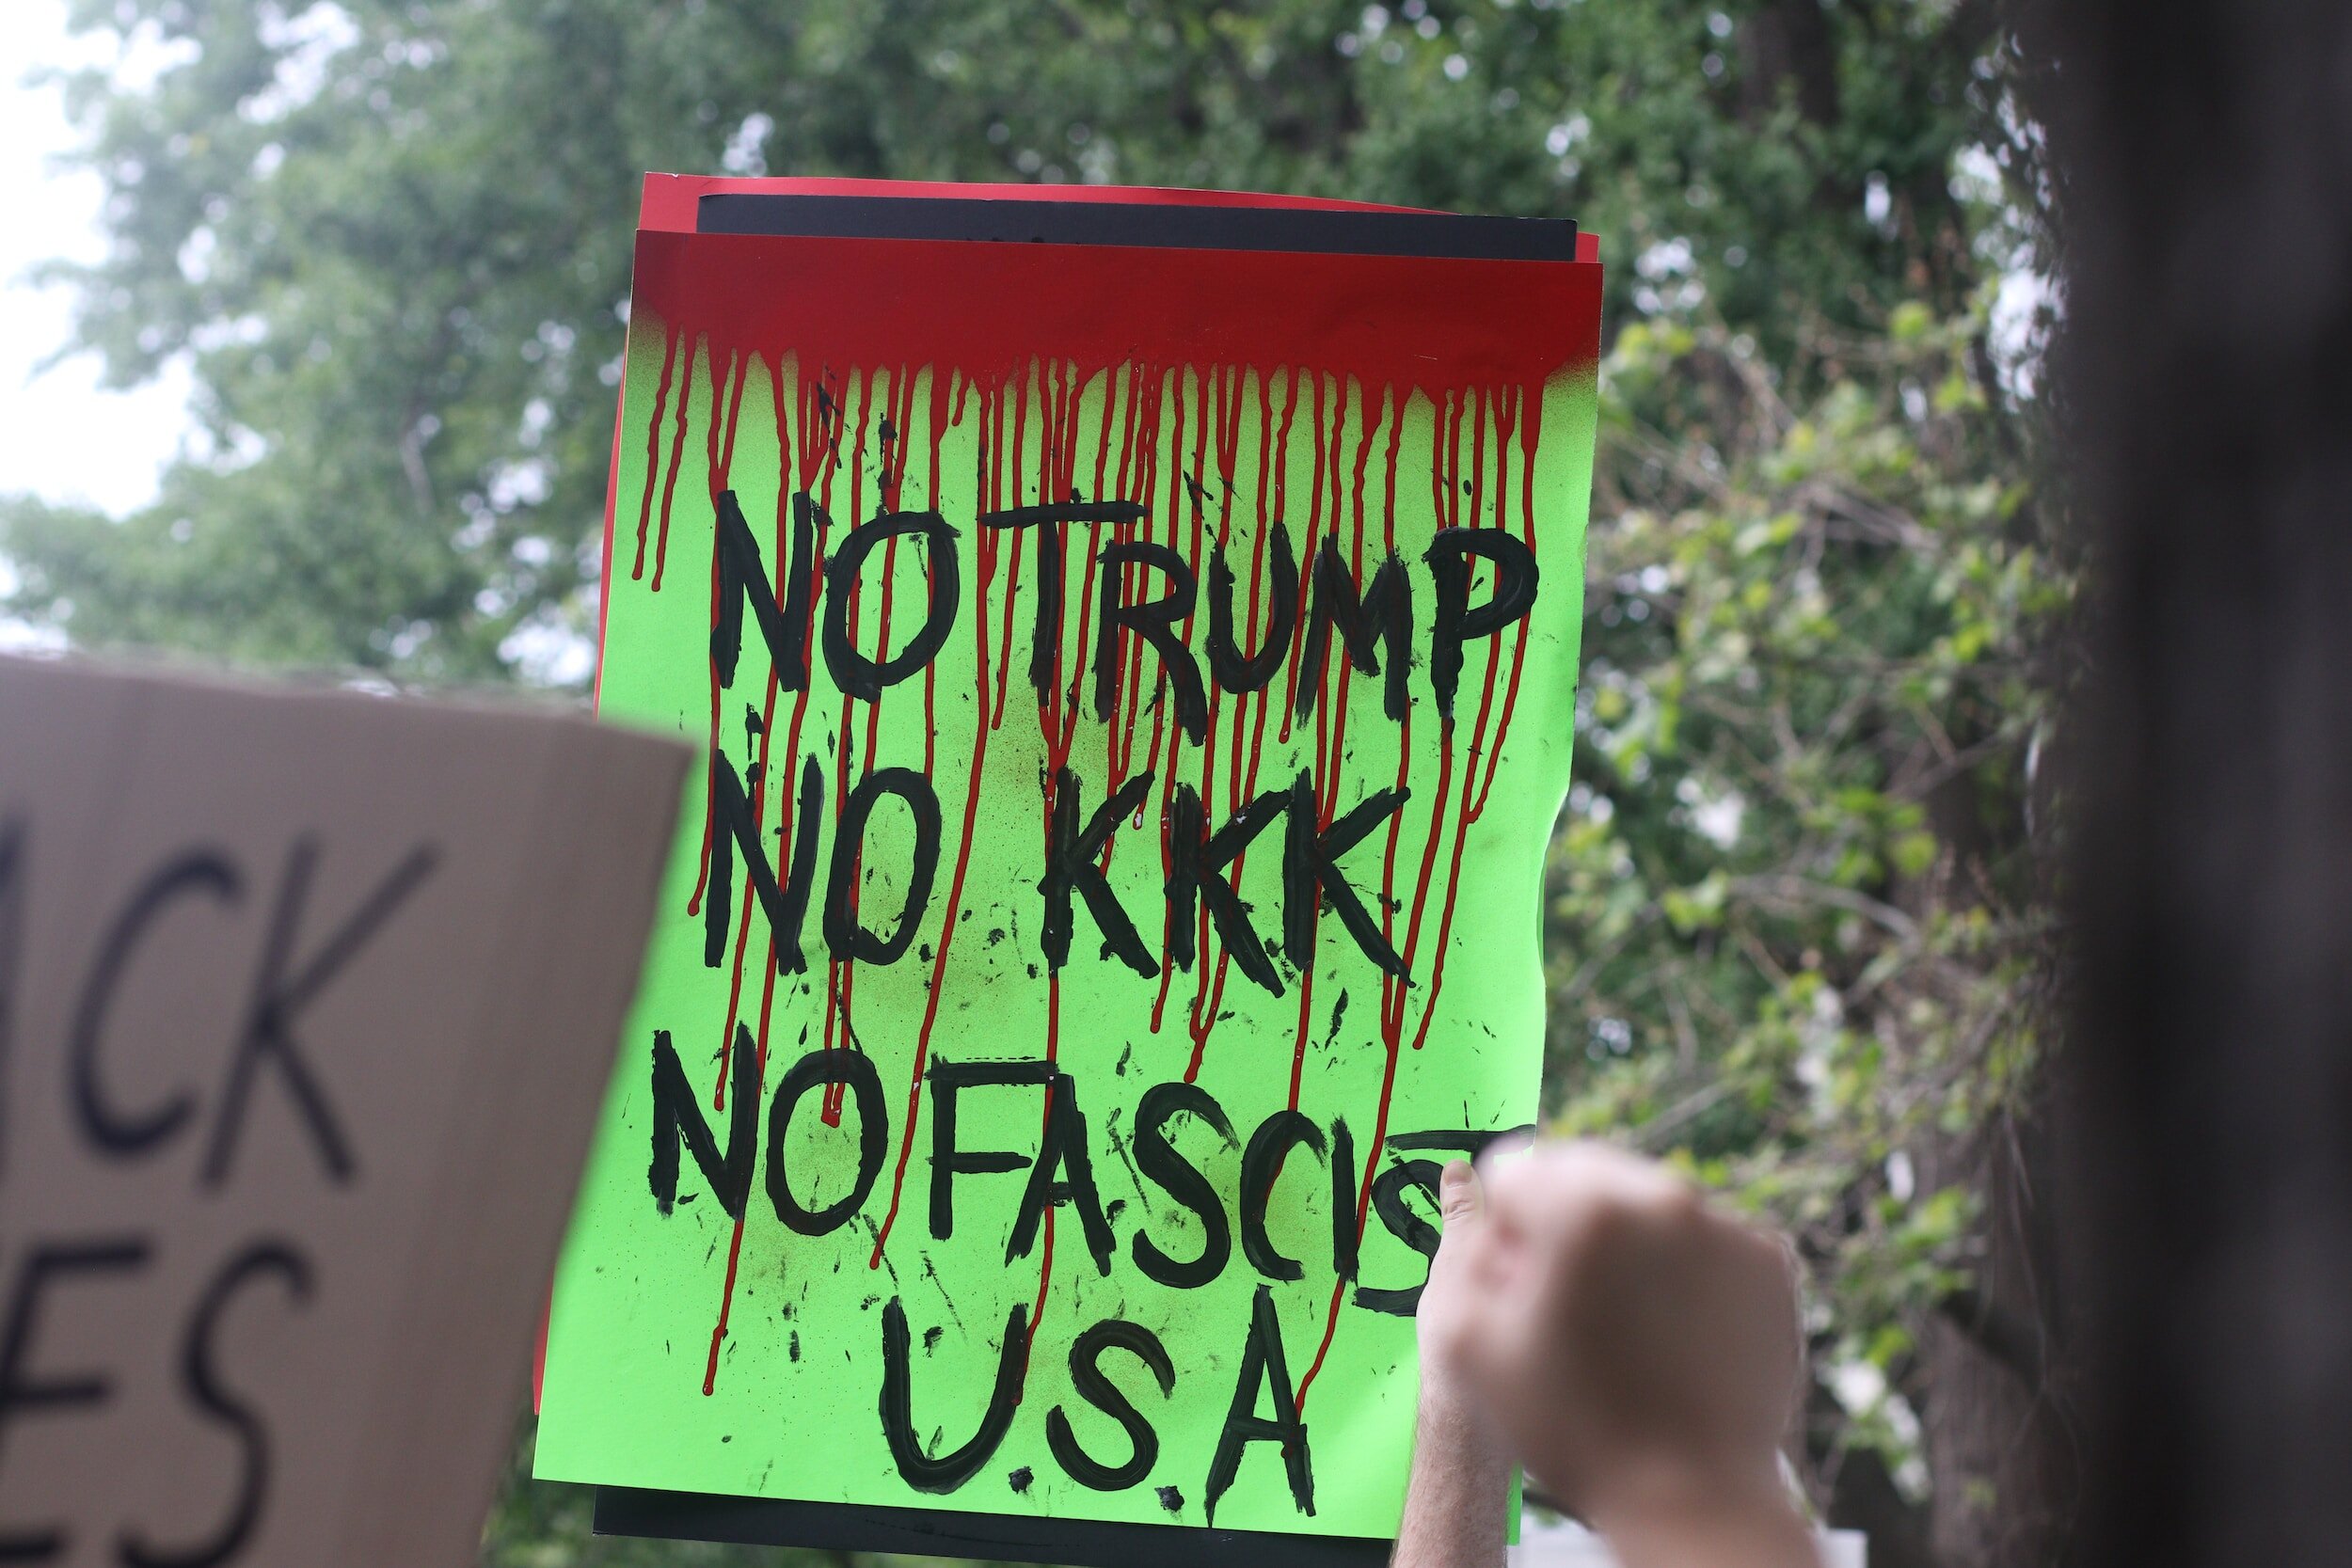 NO TRUMP
NO KKK
NO FASCIST
U.S.A
CK
ES